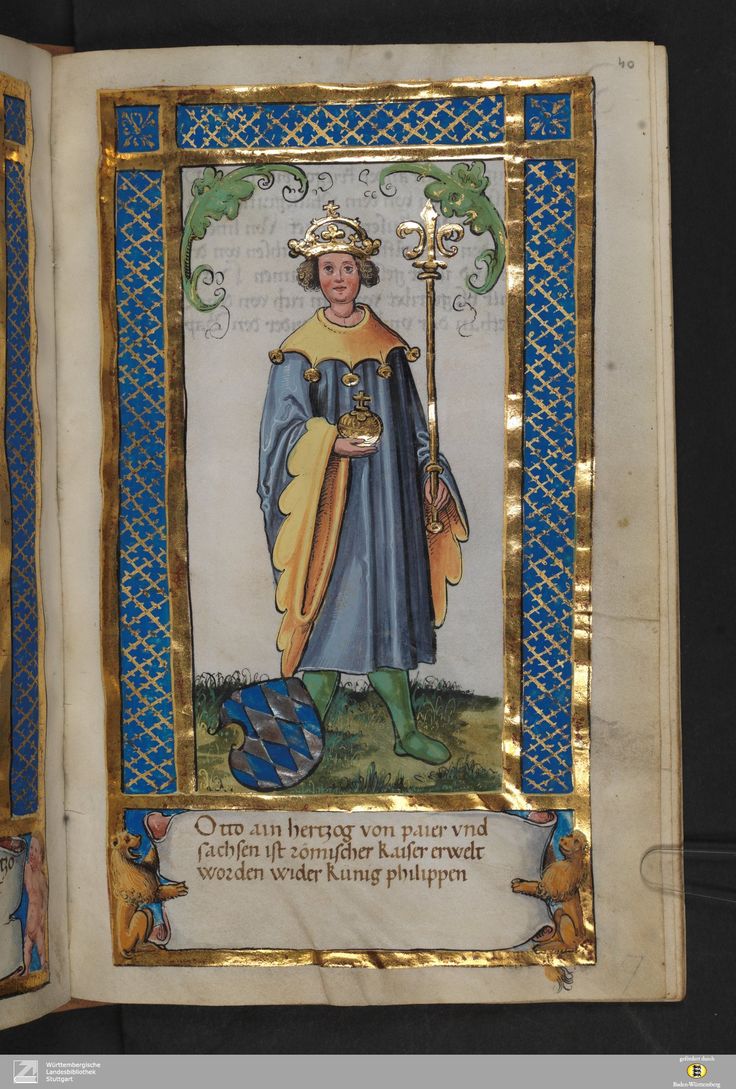 40
Otto ain hertzog von paier vnd
sachsen ist römischer kaiser erwelt
worden wider kunig philippen
7
Württembergische
Landesbibliothek
Stuttgart
gefördert durch
Baden-Württemberg